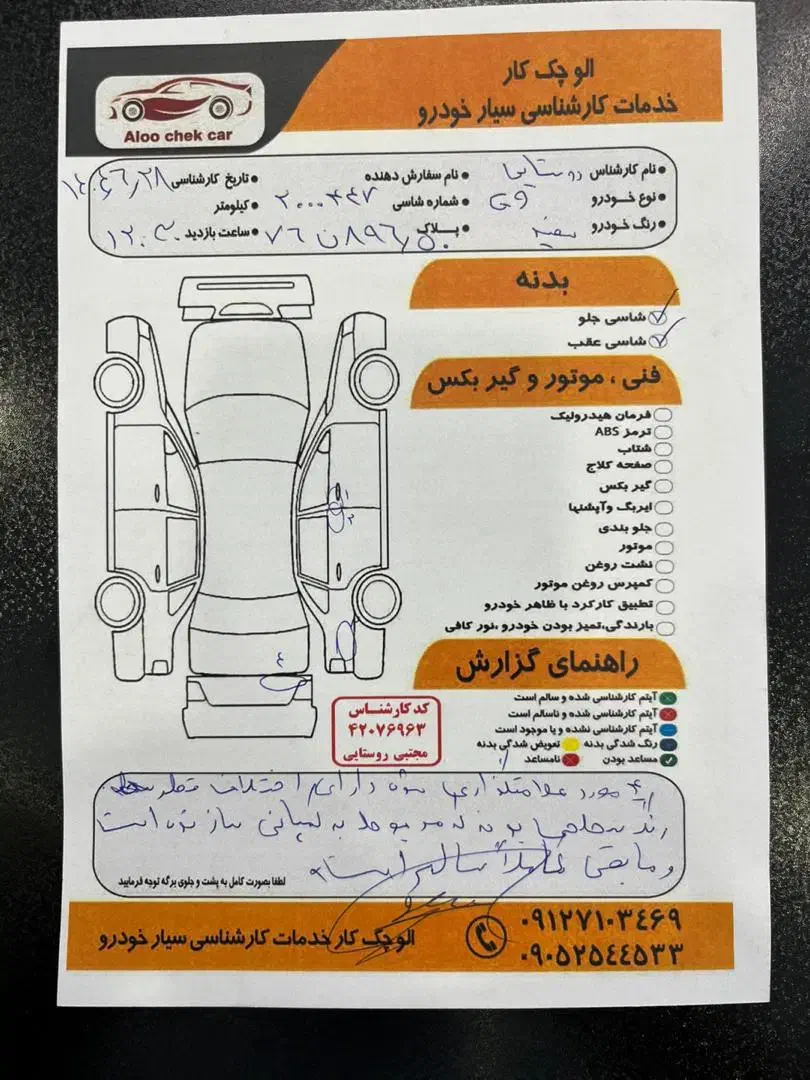 الو چک کار
خدمات کارشناسی سیار خودرو
Aloo chek car
نام کارشناس روستایی
نام سفارش دهنده
تاریخ کارشناسی
نوع خودرو G9
شماره شاسی ۲۰۰۰۴۴۷
کیلومتر
رنگ خودرو سفید
پلاک
ساعت بازدید ۱۲:۳۰
بدنه
شاسی جلو
شاسی عقب
فنی ، موتور و گیر بکس
فرمان هیدرولیک
ترمز ABS
شتاب
صفحه کلاج
گیر بکس
ایربگ وآپشنها
جلو بندی
موتور
نشت روغن
کمپرس روغن موتور
تطبیق کارکرد با ظاهر خودرو
بارندگی،تمیز بودن خودرو ،نور کافی
۱
۲
۴
راهنمای گزارش
آیتم کارشناسی شده و سالم است
آیتم کارشناسی شده و ناسالم است
آیتم کارشناسی نشده و یا موجود است
رنگ شدگی بدنه
تعویض شدگی بدنه
مساعد بودن
نامساعد
کد کارشناس
۴۲۰۷۶۹۶۳
مجتبی روستایی
۴ مورد علامتگذاری شده دارای اختلاف
رنگ بوده که مربوط به کمپانی ساز بوده است
و مابقی کاملاً سالم است
لطفا بصورت کامل به پشت و جلوی برگه توجه فرمایید
۰۹۱۲۷۱۰۳۴۶۹
۰۹۰۵۲۵۴۴۵۳۳
الو چک کار خدمات کارشناسی سیار خودرو